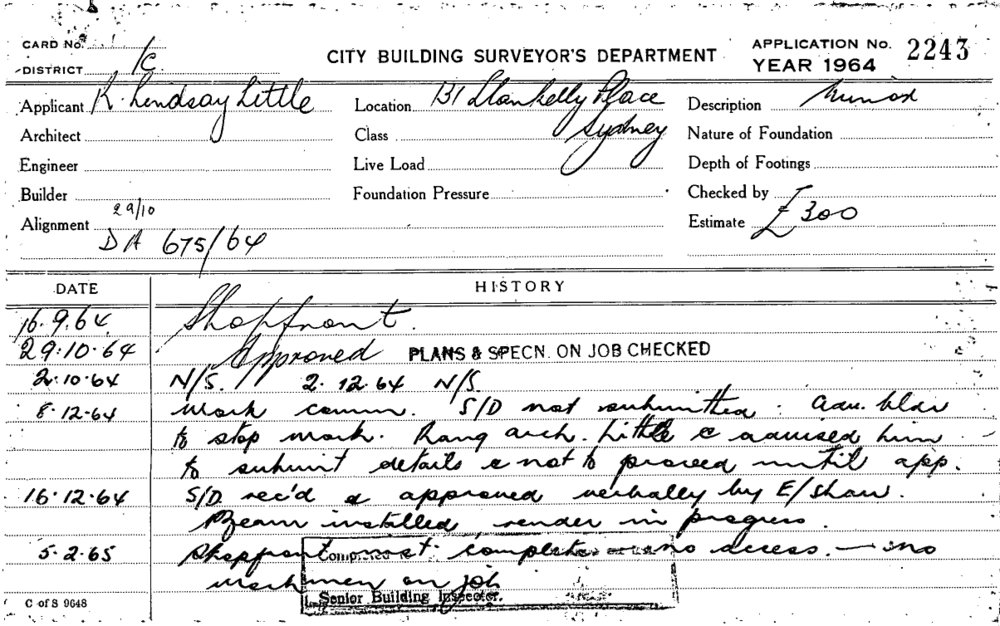 CARD No. CITY BUILDING SURVEYOR'S DEPARTMENT APPLICATION No. 2243
DISTRICT 1C YEAR 1964
Applicant K. Lindsay Little Location 131 Llankelly Place Description Minor
Architect Class Sydney Nature of Foundation
Engineer Live Load Depth of Footings
Builder Foundation Pressure Checked by
Alignment 29/10 Estimate £300
DA 675/64
DATE HISTORY
16.9.64 Shopfront.
29.10.64 Approved PLANS & SPECN. ON JOB CHECKED
2.10.64 N/S. 2.12.64 N/S.
8.12.64 Work comm. S/D not submitted. Adv. bldr
to stop work. Rang arch. Little & advised him
to submit details & not to proceed until app.
16.12.64 S/D rec'd & approved verbally by E/Shaw.
Beam installed render in progress.
5.2.65 Shopfront complete no access. — no
workmen on job
Senior Building Inspector.
C of S 9648